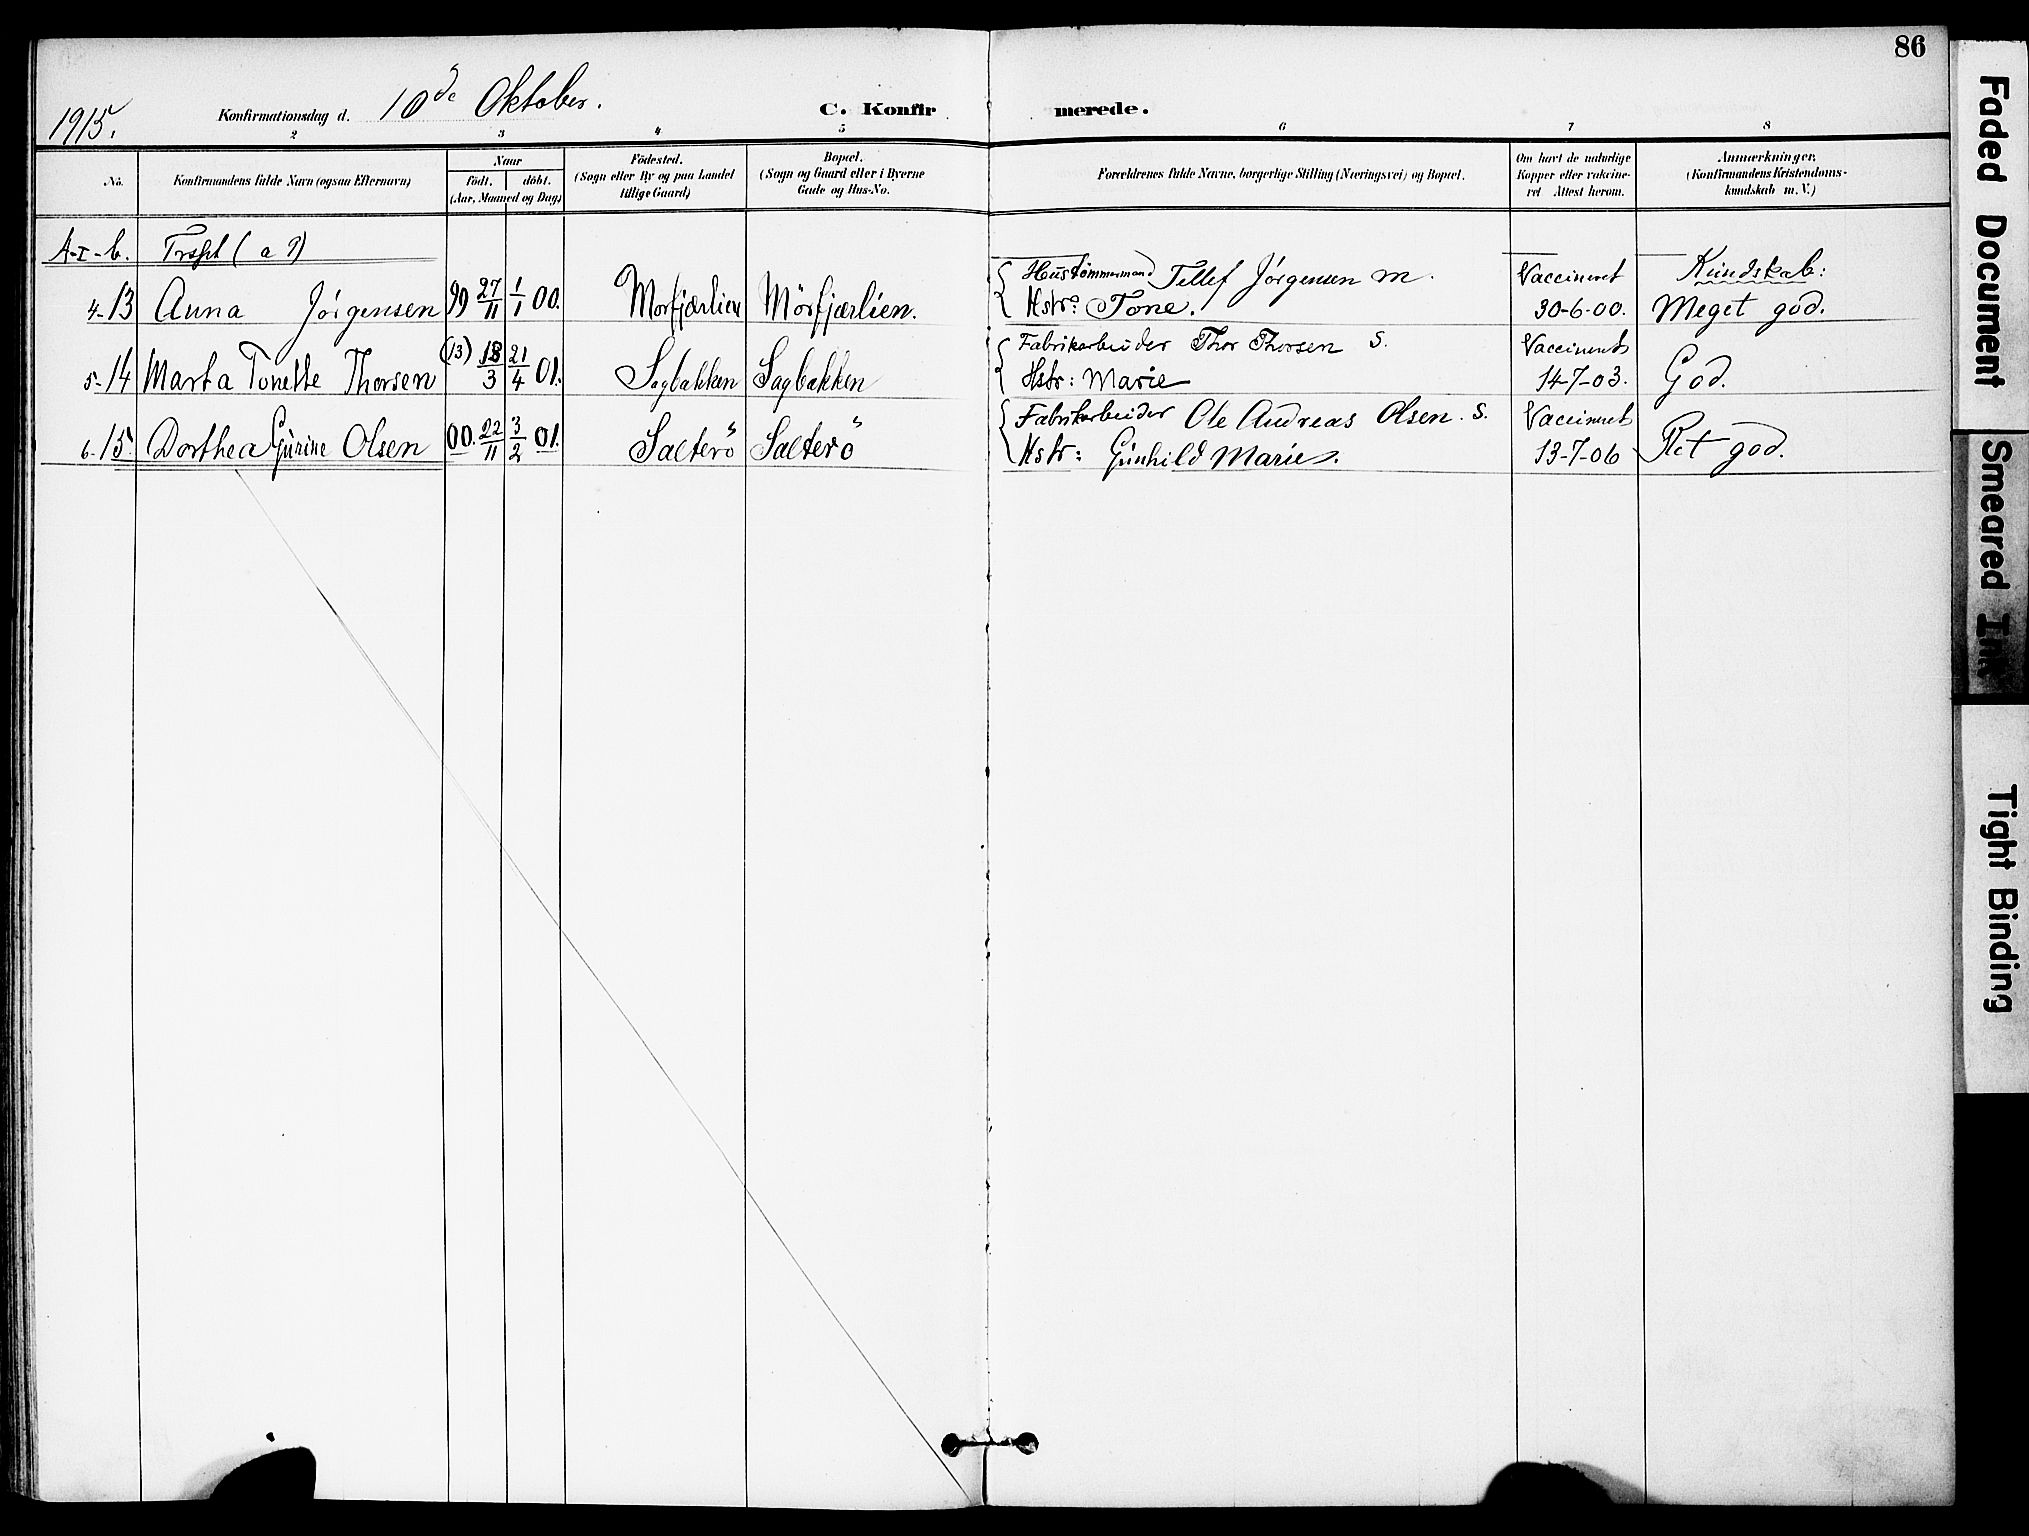 86
1915. Konfirmationsdag d. 10de Oktober. C. Konfir merede.
2 3 4 5 6 7 8
No. Konfirmandens fulde Navn (ogsaa Efternavn) Naar Födested. Bopæl. Forældrenes fulde Navne, borgerlige Stilling (Næringsvei) og Bopæl. Om havt de naturlige Anmærkninger,
födt. döbt. (Sogn eller By og paa Landet (Sogn og Gaard eller i Byerne Kopper eller vakcine- (Konfirmandens Kristendoms-
(Aar, Maaned og Dag) tillige Gaard) Gade og Hus-No. ret Attest herom. kundskab m. V.)
A-I-b.
Kundskab:
4-13 Anna Jörgensen 99 27/11 1/1 00. Morfjærlien Mörfjærlien. Hustömmermand Tellef Jörgensen m. Vaccineret
Hstr: Tone. 30-6-00. Meget god.
5-14 Marta Tonette Thorsen (13) 13/3 21/4 01. Sagbakken Sagbakken Fabrikarbeider Thor Thorsen S. Vaccineret
Hstr: Marie 14-7-03. God.
6-15. Dorthea Gurine Olsen 00. 22/11 3/2 01. Salterö Salterö Fabrikarbeider Ole Andreas Olsen. S. Vaccineret
Hstr: Gunhild Marie. 13-7-06 Ret god.
Faded Document
Smeared Ink
Tight Binding